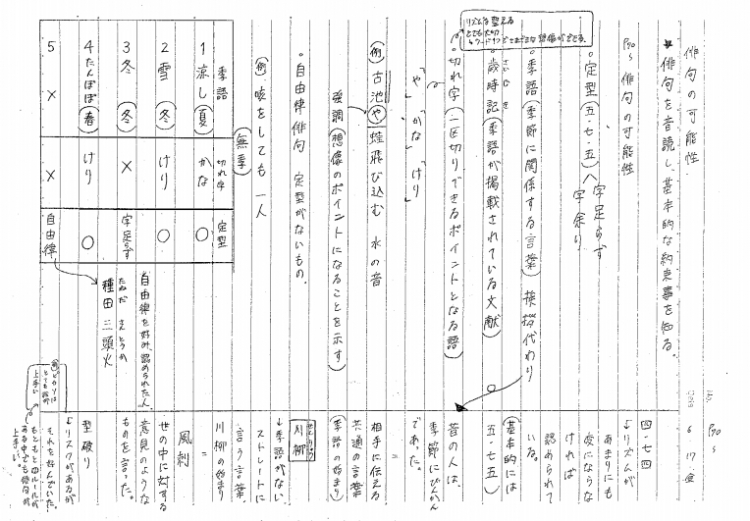 俳句の可能性
6.17 金
P90〜
★俳句を音読し、基本的な約束事を知る。
P90〜 俳句の可能性
◦定型（五・七・五）
字足らず
字余り
◦季語（季節に関係する言葉） 挨拶代わり
◦歳時記（季語が掲載されている文献）
さいじき
◦切れ字（一区切りできるポイントとなる語）
リズムを整える
とても大切
「や」「かな」「けり」
例 古池や 蛙飛び込む 水の音
強調（想像のポイントになることを示す）
◦自由律俳句 定型がないもの。
例 咳をしても 一人
（無季）
季語 切れ字 定型
1 涼し（夏） かな 〇
2 雪（冬） けり 〇
3 冬（冬） × 字足らず
4 たんぽぽ（春） けり 〇
5 × × 自由律
自由律を好み、認められた人。
たねだ さんとうか
種田 三頭火
四・七・四
↓リズムが
あまりにも
変にならな
ければ
認められて
いる。
基本的には
五・七・五
昔の人は、
季節にびんかん
であった。
=
相手に伝える
共通の言葉
（季語の始まり）
せんりゅう
川柳
↓季語がない
ストレートに
言う言葉。
川柳の始まり
=
風刺
世の中に対する
意見のような
ものを言った。
型破り
↓リスクがあるが
それを好んでいた。
もともとのルールが
上手い。
例 ピカソは
とても絵が
上手い